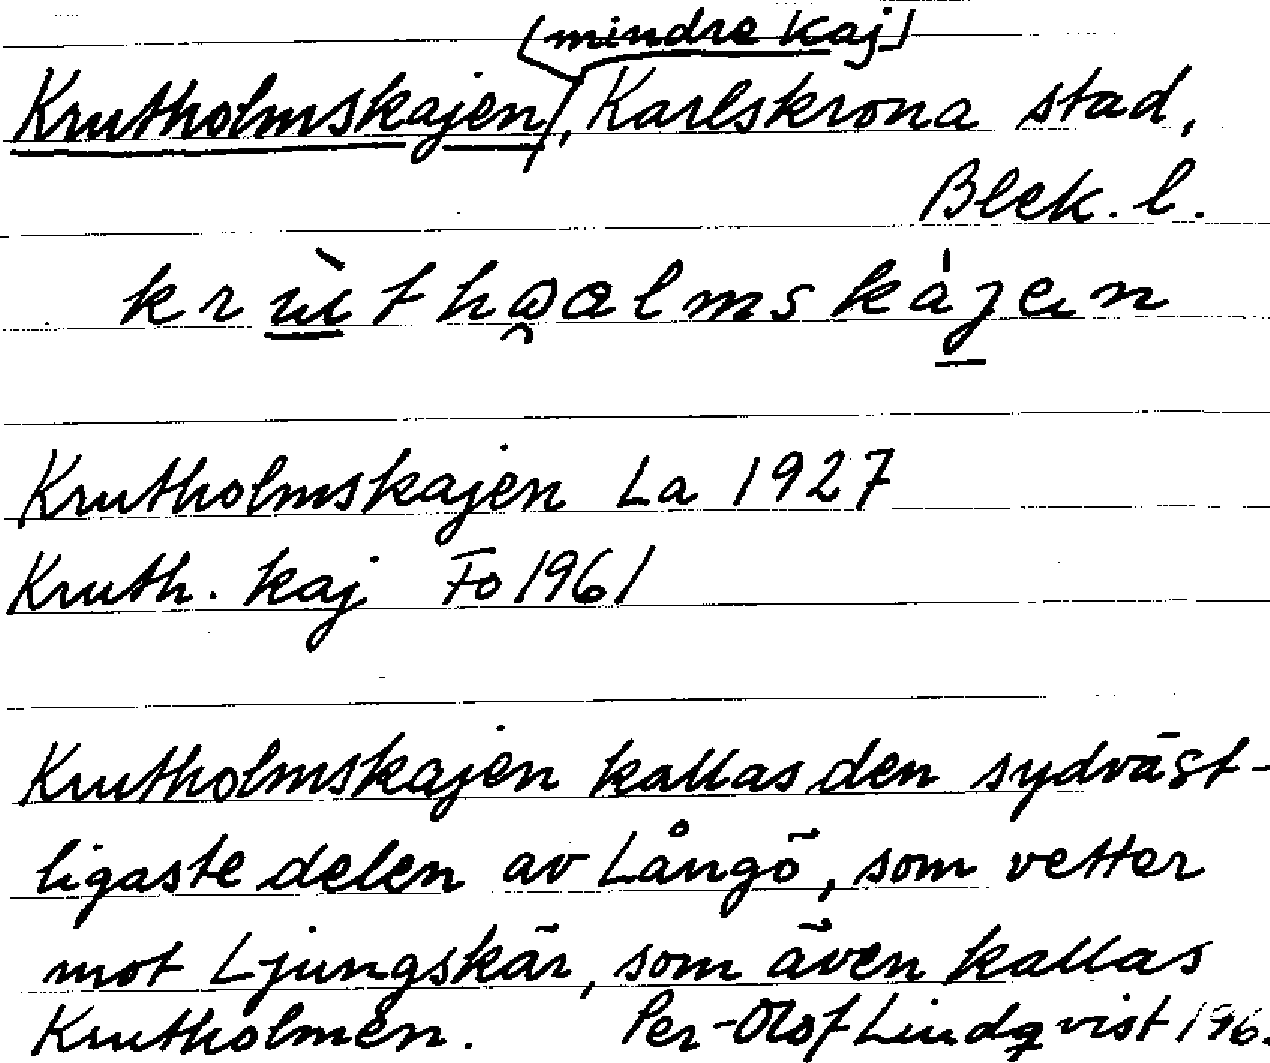 (mindre kaj)
Krutholmskajen, Karlskrona stad,
Blek. l.
Krutholmskajen La 1927
Kruth. kaj Fo 1961
Krutholmskajen kallas den sydväst-
ligaste delen av Långö, som vetter
mot Ljungskär, som även kallas
Krutholmen. Per-Olof Lindqvist 196.